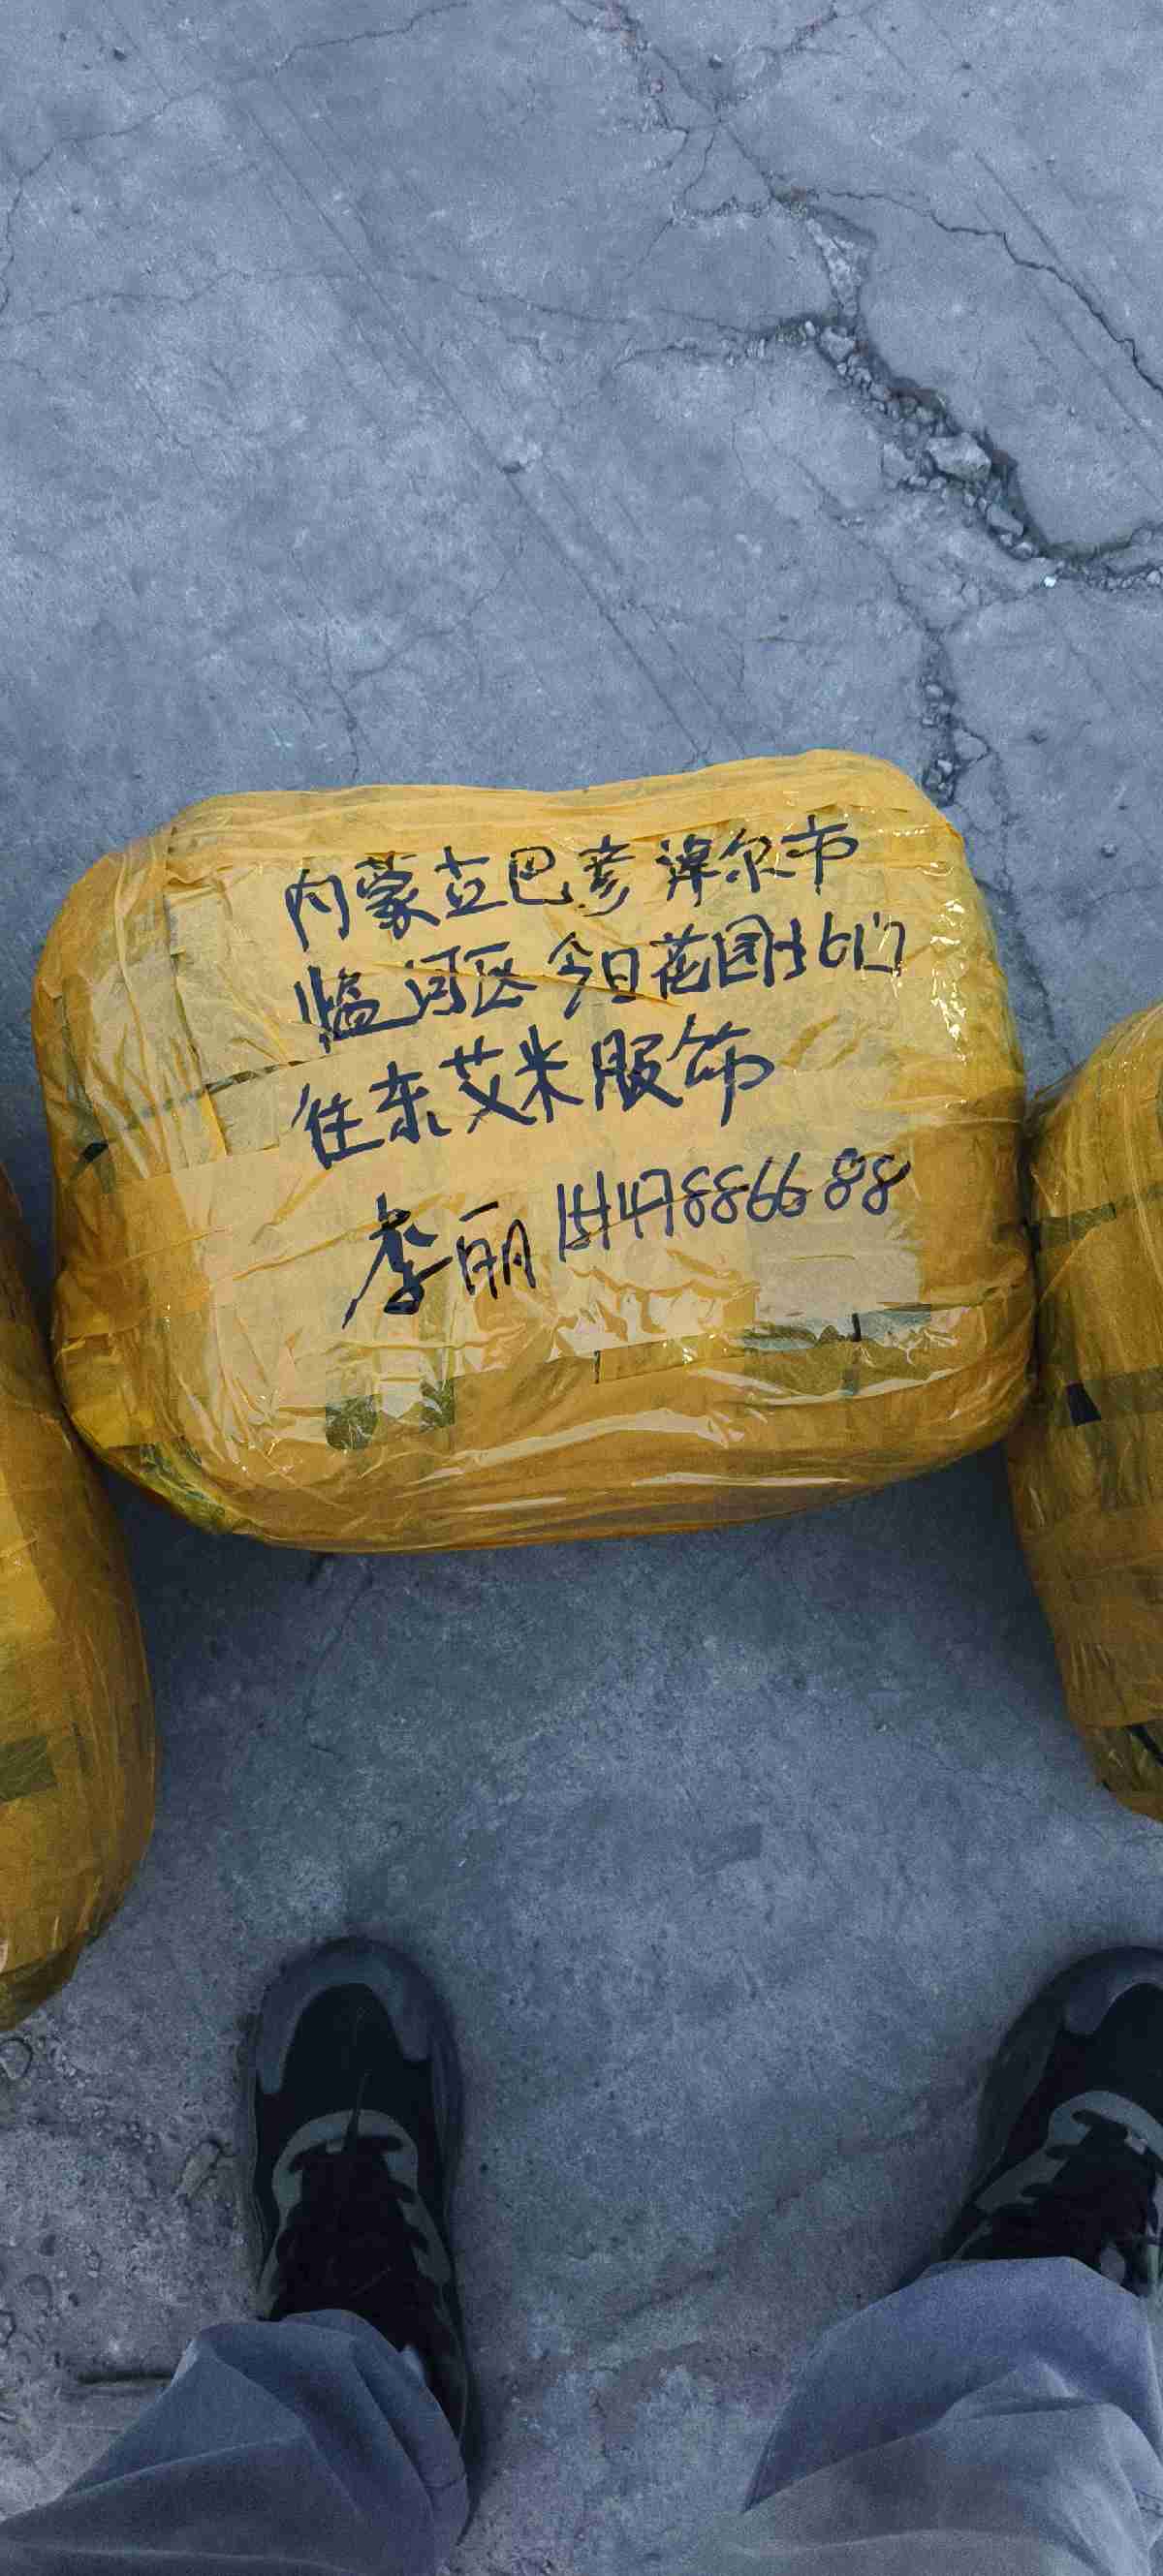 内蒙古巴彦淖尔市
临河区今日花园北门
往东艾米服饰
李丽 15147886688